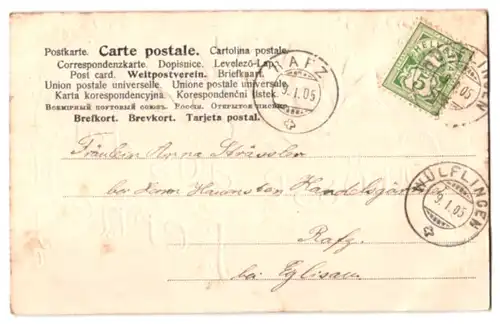 Postkarte. Carte postale. Cartolina postale.
Correspondenzkarte. Dopisnice. Levelező-Lap.
Post card. Weltpostverein. Briefkaart.
Union postale universelle. Unione postale universale.
Karta korespondencyjna. Korespondenční lístek.
Всемирный почтовый союзъ. Россія. Открытое письмо.
Brefkort. Brevkort. Tarjeta postal.
RAFZ
9.I.05
HELVETIA
5
LINGEN
I.05
Fräulein Anna Strässler
bei Herrn Handelsgärtner
WÜLFLINGEN
9.I.05
Rafz
bei Eglisau